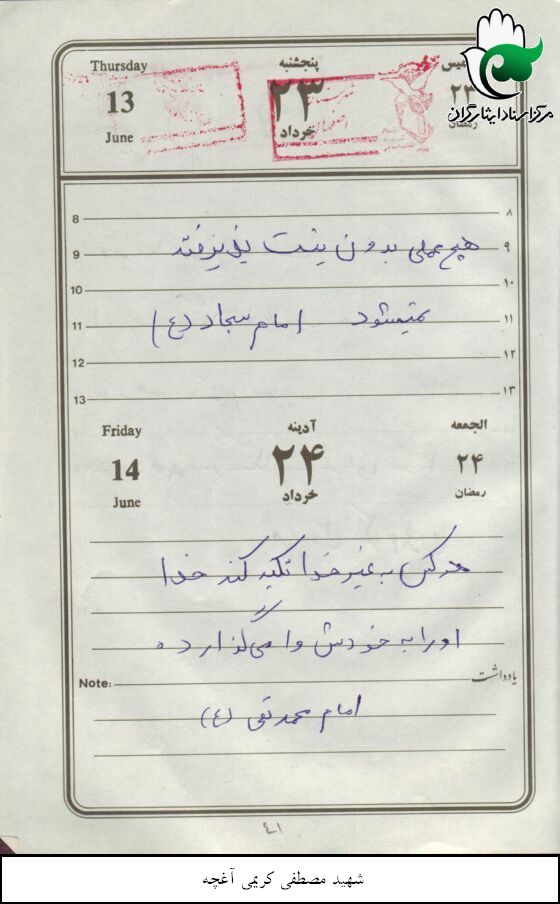 مرکز اسناد ایثارگران
Thursday پنجشنبه
13 ۲۳ ۲۳
June خرداد رمضان
8 ۸
9 هیچ عملی بدون نیت پذیرفته ۹
10 ۱۰
11 نمیشود امام سجاد (ع) ۱۱
12 ۱۲
13 ۱۳
Friday آدینه الجمعه
14 ۲۴ ۲۴
June خرداد رمضان
هر کس به غیر خدا تکیه کند خدا
او را به خودش وا میگذارد ه
Note: یادداشت
امام محمد تقی (ع)
۴۱
شهید مصطفی کریمی آغچه